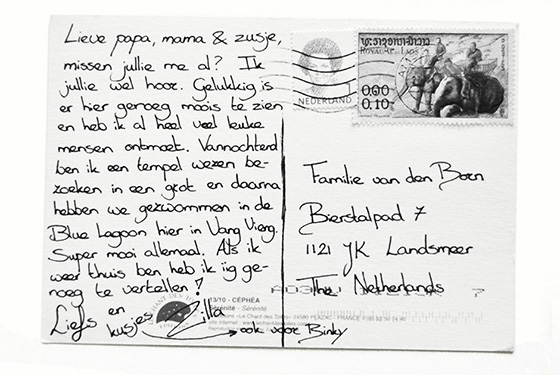 Lieve papa, mama & zusje,
missen jullie me al? Ik
jullie wel hoor. Gelukkig is
er hier genoeg moois te zien
en heb ik al heel veel leuke
mensen ontmoet. Vannochterd
ben ik een tempel wezen be-
zoeken in een grot en daarna
hebben we gezwommen in de
Blue Lagoon hier in Vang Vieng.
Super mooi allemaal. Als ik
weer thuis ben heb ik iig ge-
noeg te vertellen!
Liefs en
kusjes Zilla
→ ook voor Binky
13/10 - CÉPHÉA
Sérénité - Sérénité
NEDERLAND
ROYAUME LAOS
0.00
0.10
Familie van den Born
Bierstalpad 7
1121 JK Landsmeer
The Netherlands